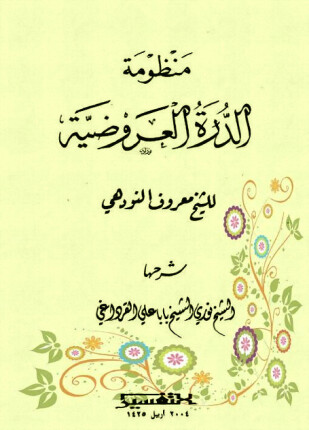 منظومة
الدُّرَةُ العَروضيَّة
للشيخ معروف النودهي
شرحها
الشيخ نوري الشيخ بابا علي القرداغي
٢٠٠٤ اربيل ١٤٢٥